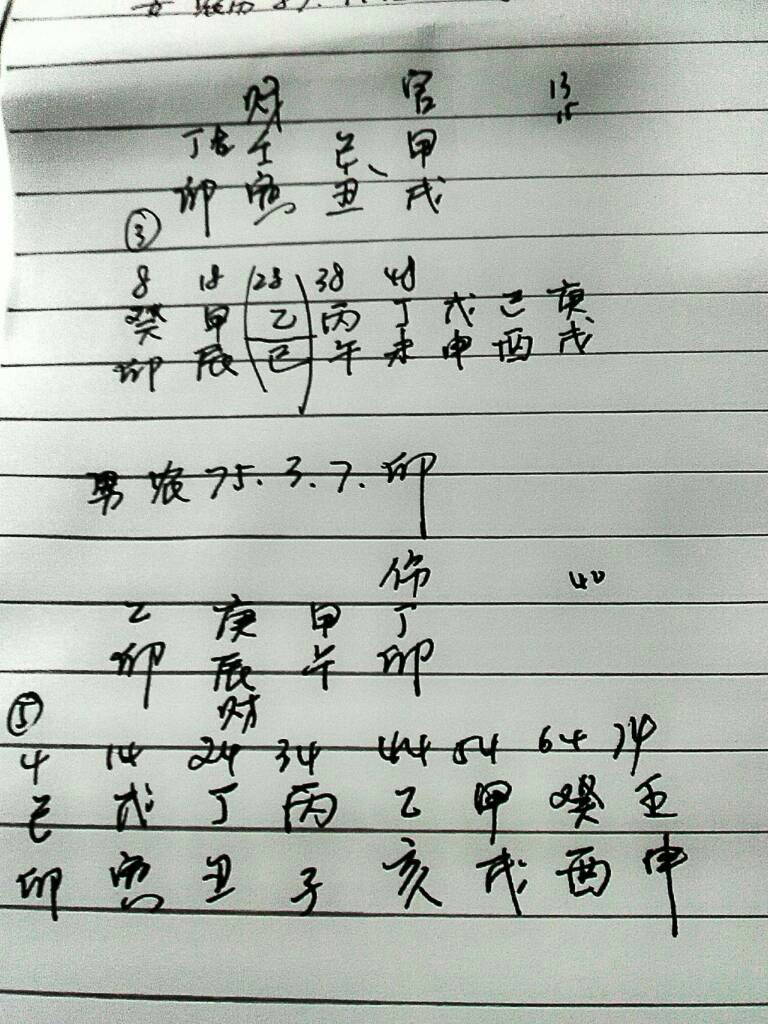 财 官 13
15
丁 壬 己、 甲
卯 寅 丑 戌
③
8 18 28 38 48
癸 甲 乙 丙 丁 戊 己 庚
卯 辰 巳 午 未 申 酉 戌
男 农 75.3.7.卯
伤 40
乙 庚 甲 丁
卯 辰 午 卯
⑤ 财
4 14 24 34 44 54 64 74
己 戊 丁 丙 乙 甲 癸 壬
卯 寅 丑 子 亥 戌 酉 申